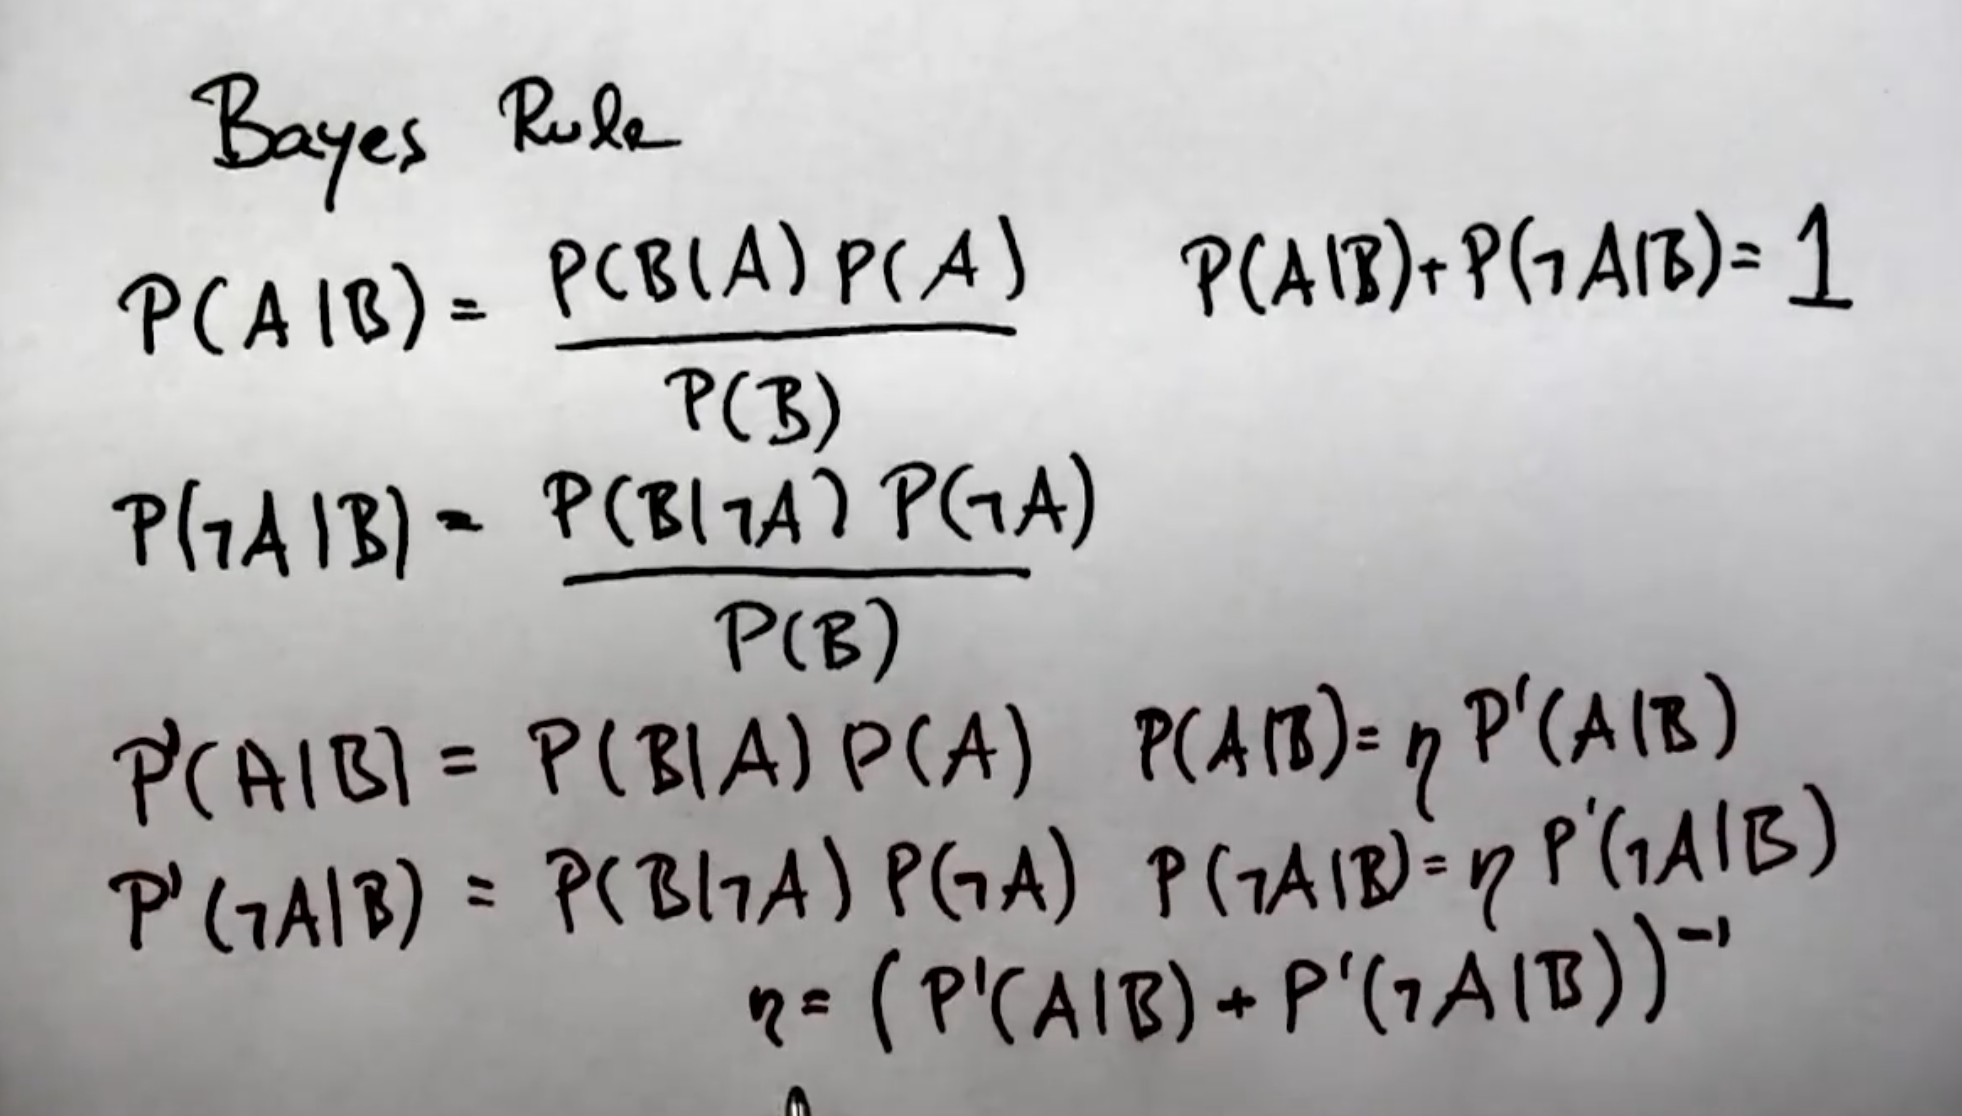 Bayes Rule
P(A|B) = P(B|A) P(A) / P(B)    P(A|B) + P(¬A|B) = 1
P(¬A|B) = P(B|¬A) P(¬A) / P(B)
P'(A|B) = P(B|A) P(A)    P(A|B) = η P'(A|B)
P'(¬A|B) = P(B|¬A) P(¬A)    P(¬A|B) = η P'(¬A|B)
η = (P'(A|B) + P'(¬A|B))⁻¹